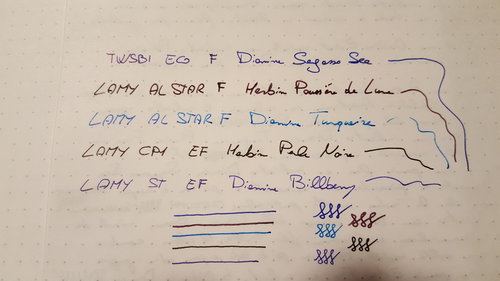 TWSBI ECO F Diamine Sagasso Sea
LAMY AL STAR F Herbin Poussière de Lune
LAMY AL STAR F Diamine Turquoise
LAMY CP1 EF Herbin Perle Noire
LAMY ST EF Diamine Billberry